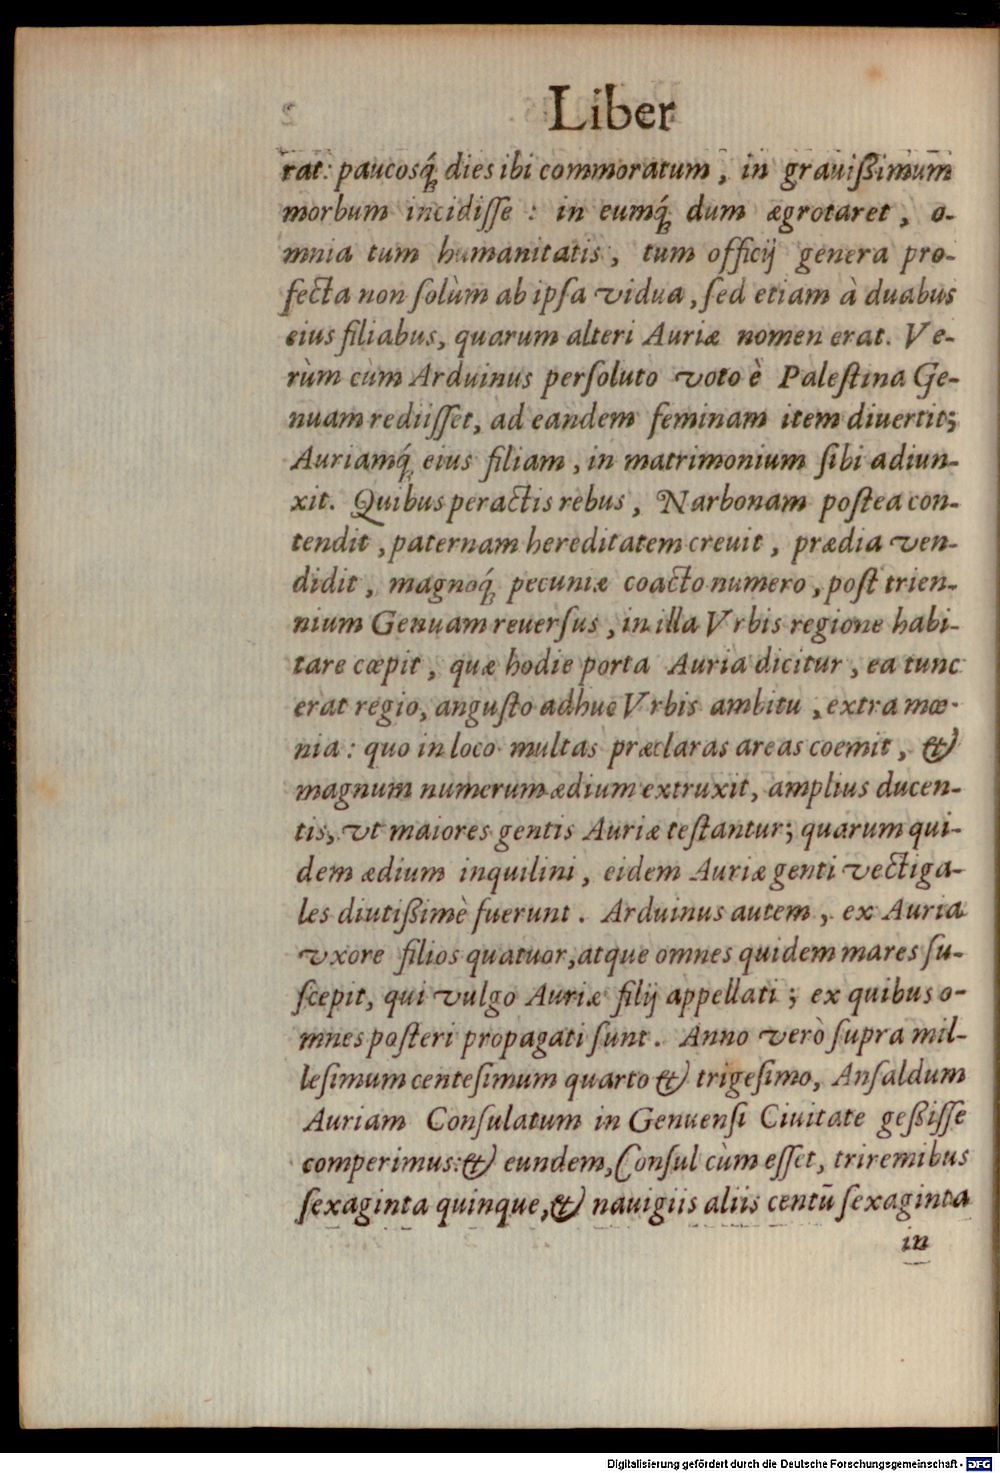 Liber
rat: paucosq́ꝫ dies ibi commoratum, in grauißimum
morbum incidiſſe: in eumq́ꝫ dum ægrotaret, o-
mnia tum humanitatis, tum officij genera pro-
fecta non ſolùm ab ipſa vidua, ſed etiam à duabus
eius filiabus, quarum alteri Auriæ nomen erat. Ve-
rùm cùm Arduinus perſoluto voto è Paleſtina Ge-
nuam rediiſſet, ad eandem feminam item diuertit;
Auriamq́ꝫ eius filiam, in matrimonium ſibi adiun-
xit. Quibus peractis rebus, Narbonam poſtea con-
tendit, paternam hereditatem creuit, prædia ven-
didit, magnoq́ꝫ pecuniæ coacto numero, poſt trien-
nium Genuam reuerſus, in illa Vrbis regione habi-
tare cœpit, quæ hodie porta Auria dicitur, ea tunc
erat regio, anguſto adhuc Vrbis ambitu, extra mœ-
nia: quo in loco multas præclaras areas coemit, &
magnum numerum ædium extruxit, amplius ducen-
tis, vt maiores gentis Auriæ teſtantur; quarum qui-
dem ædium inquilini, eidem Auriæ genti vectiga-
les diutißimè fuerunt. Arduinus autem, ex Auria
vxore filios quatuor, atque omnes quidem mares ſu-
ſcepit, qui vulgo Auriæ filij appellati; ex quibus o-
mnes poſteri propagati ſunt. Anno verò ſupra mil-
leſimum centeſimum quarto & trigeſimo, Anſaldum
Auriam Conſulatum in Genuenſi Ciuitate geßiſſe
comperimus: & eundem, Conſul cùm eſſet, triremibus
ſexaginta quinque, & nauigiis aliis centū ſexaginta
in
Digitalisierung gefördert durch die Deutsche Forschungsgemeinschaft - DFG